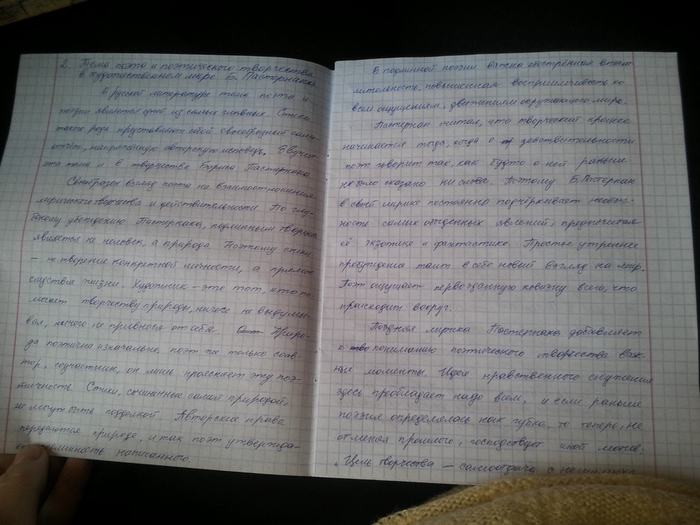 2. Тема поэта и поэтического творчества
в художественном мире Б. Пастернака
В русской литературе тема поэта и
поэзии является одной из самых главных. Стихи
такого рода представляют собой своеобразный само-
отчёт, напряжённую авторскую исповедь. Звучит
эта тема и в творчестве Бориса Пастернака.
Своеобразен взгляд поэта на взаимоотношения
лирического и действительности. По глу-
бокому убеждению Пастернака, подлинным творцом
является не человек, а природа. Поэтому стихи
– не творение конкретной личности, а прямое
следствие жизни. Художник – это тот, кто по-
могает творчеству природы, ничего не выдумы-
вая, ничего не привнося от себя. Приро-
да поэтична изначально, поэт же только соав-
тор, соучастник, он лишь проясняет эту поэ-
тичность. Стихи, сказанные самой природой,
не могут быть подделкой. Авторские права
передаются природе, и так поэт утвержда-
написанного.
В подлинной поэзии важна обострённая впечат-
лительность, повышенная восприимчивость ко
всем ощущениям, движениям окружающего мира.
Пастернак считал, что творческий процесс
начинается тогда, когда о действительности
поэт говорит так, как будто о ней раньше
не было сказано ни слова. Поэтому Б. Пастернак
в своей лирике постоянно подчёркивает
самых обыденных явлений, предпочитая
её экзотике и фантастике. Простое утреннее
пробуждение таит в себе новый взгляд на мир.
Поэт ощущает первозданную новизну всего, что
происходит вокруг.
Поздняя лирика Пастернака добавляет
к пониманию поэтического творчества важ-
ные моменты. Идея нравственного служения
здесь преобладает надо всем, и если раньше
поэзия определялась как губка, то теперь, не
отменяя прошлого, господствует иной мотив:
„Цель творчества – самоотдача,